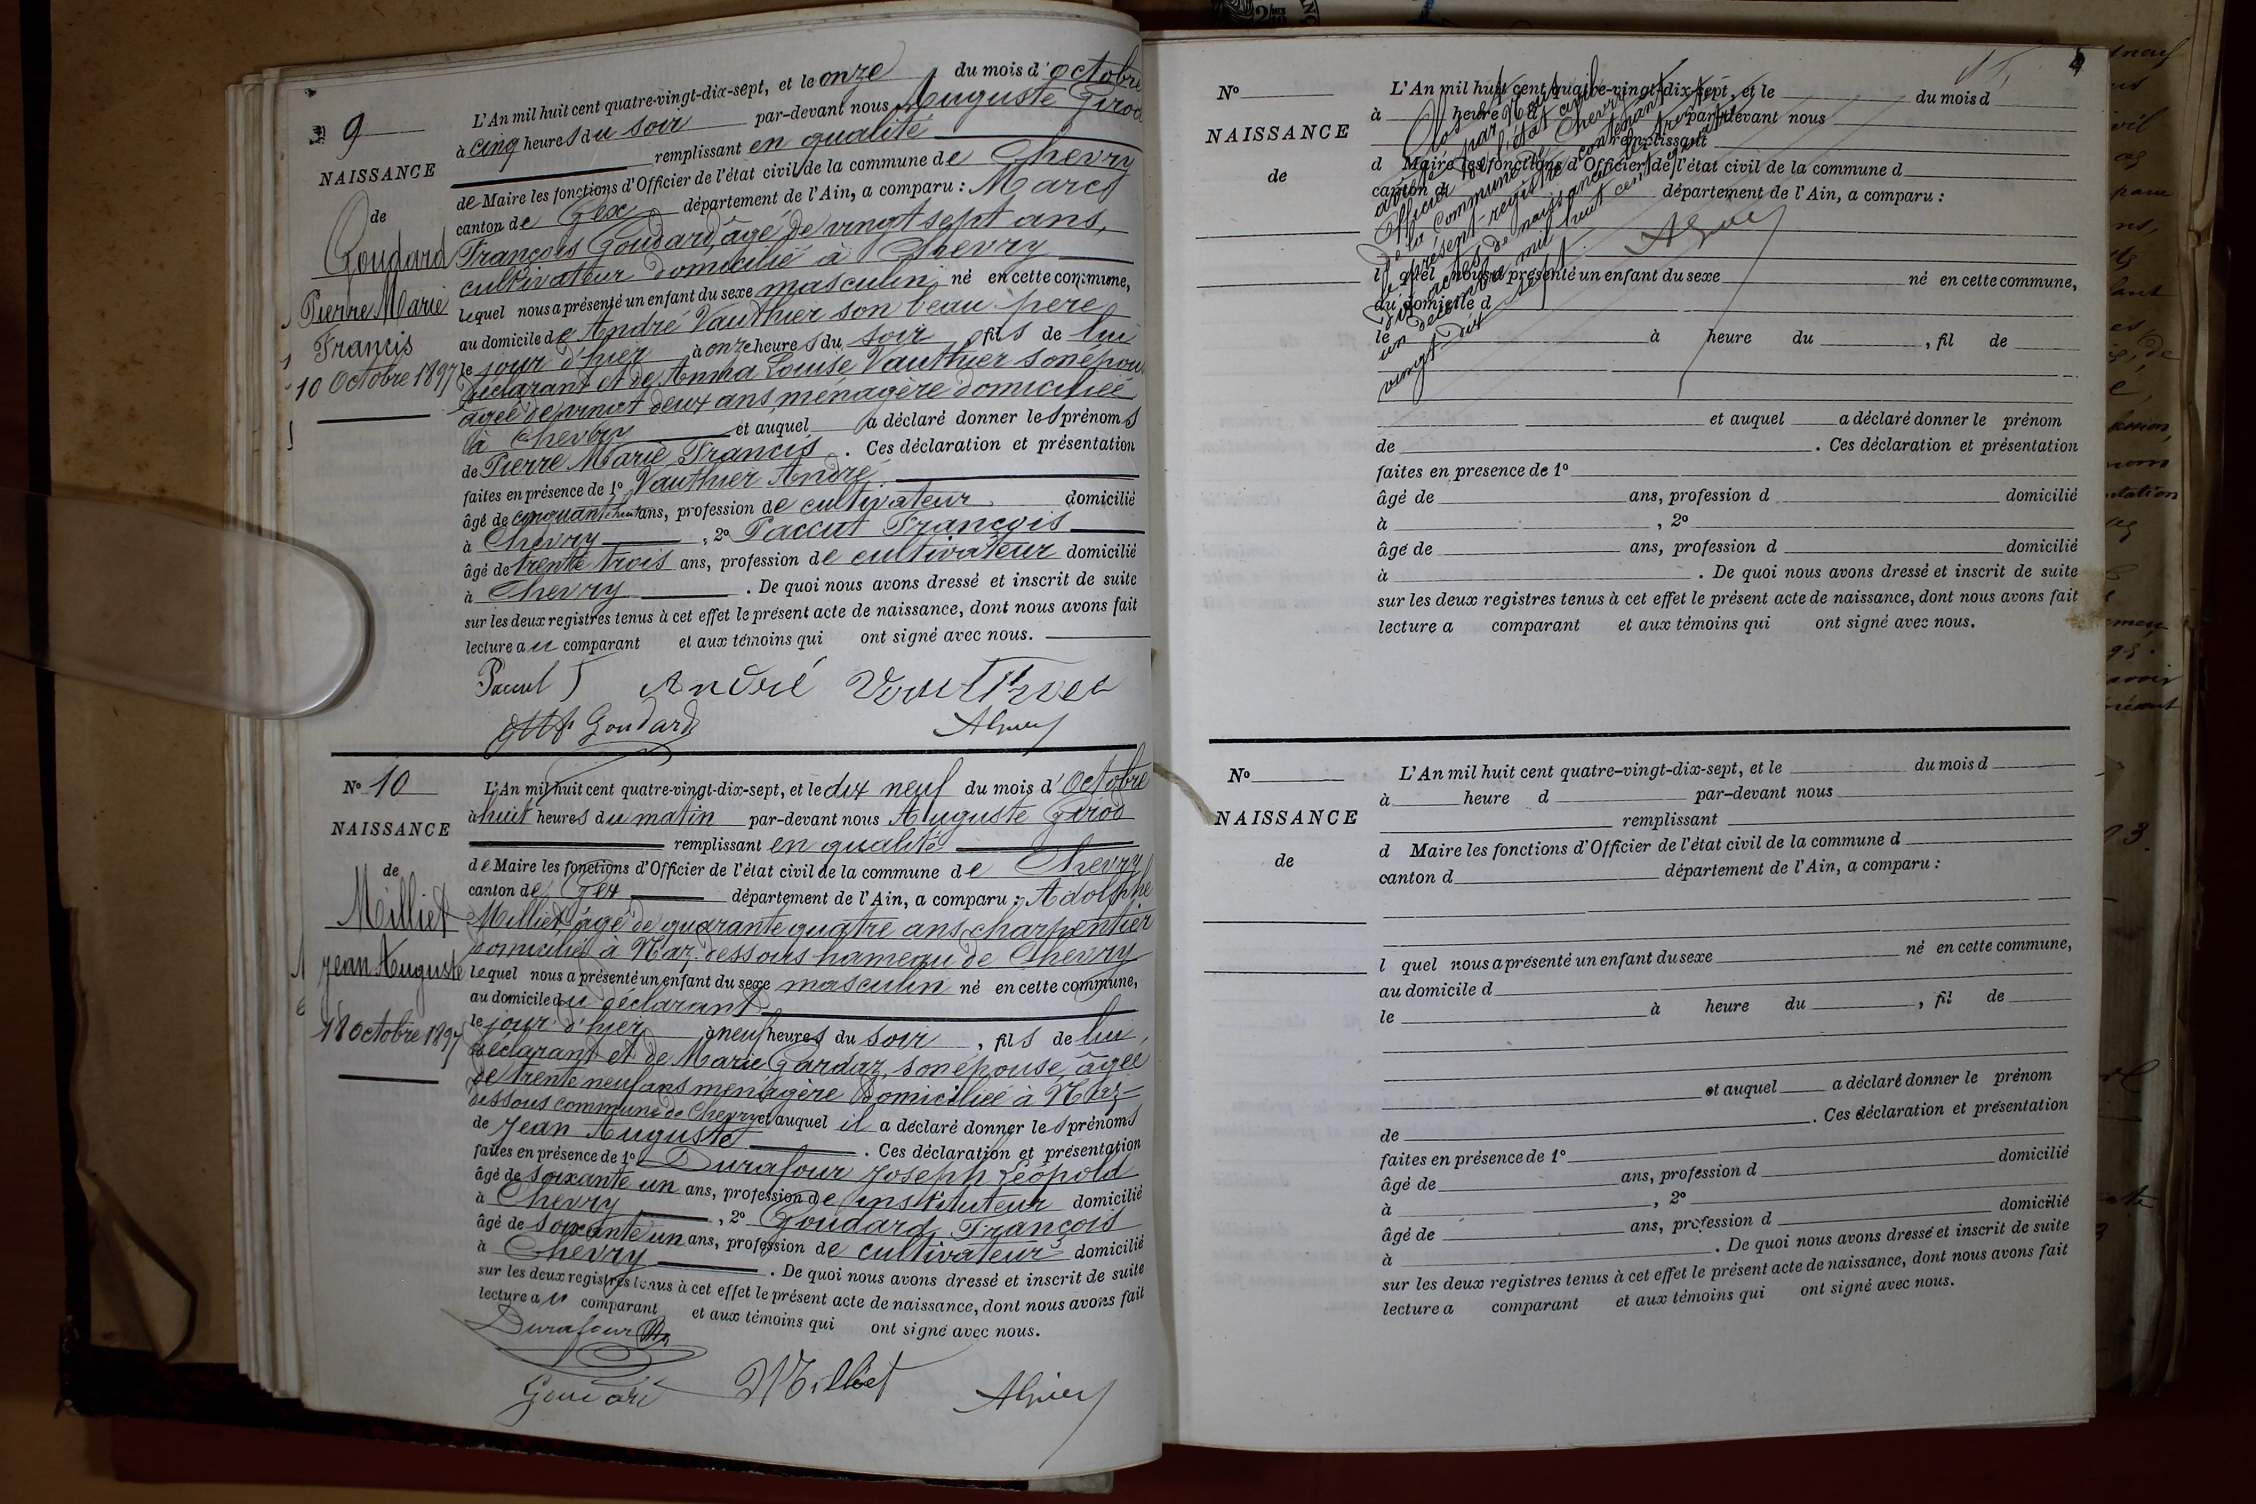 Nº 9
NAISSANCE
de
Goudard
Pierre Marie
Francis
10 Octobre 1897
L'An mil huit cent quatre-vingt-dix-sept, et le onze du mois d'octobre
à cinq heures du soir par-devant nous Auguste Girod
remplissant en qualité
de Maire les fonctions d'Officier de l'état civil de la commune de Chevry
canton de Gex département de l'Ain, a comparu : Marcs
François Goudard, âgé de vingt sept ans,
cultivateur domicilié à Chevry
lequel nous a présenté un enfant du sexe masculin né en cette commune,
au domicile de André Vauthier son beau père
le jour d'hier à onze heures du soir, fils de lui
déclarant et de Anna Louise Vauthier son épou
âgée de vingt deux ans, ménagère domiciliée
à Chevry et auquel a déclaré donner les prénoms
de Pierre Marie Francis. Ces déclaration et présentation
faites en présence de 1º Vauthier André
âgé de cinquante huit ans, profession de cultivateur domicilié
à Chevry, 2º Paccut François
âgé de trente trois ans, profession de cultivateur domicilié
à Chevry. De quoi nous avons dressé et inscrit de suite
sur les deux registres tenus à cet effet le présent acte de naissance, dont nous avons fait
lecture au comparant et aux témoins qui ont signé avec nous.
André
Goudard
Nº 10
NAISSANCE
de
Milliet
Jean Auguste
18 octobre 1897
L'An mil huit cent quatre-vingt-dix-sept, et le dix neuf du mois d'Octobre
à huit heures du matin par-devant nous Auguste Girod
remplissant en qualité
de Maire les fonctions d'Officier de l'état civil de la commune de Chevry
canton de Gex département de l'Ain, a comparu : Adolphe
Milliet âgé de quarante quatre ans, charpentier
domicilié à Naz-dessous hameau de Chevry
lequel nous a présenté un enfant du sexe masculin né en cette commune,
au domicile du déclarant
le jour d'hier à neuf heures du soir, fils de lui
déclarant et de Marie Gardaz, son épouse, âgée
de trente neuf ans ménagère domiciliée à Naz-
dessous commune de Chevry et auquel il a déclaré donner les prénoms
de Jean Auguste. Ces déclaration et présentation
faites en présence de 1º Durafour Joseph Léopold
âgé de soixante un ans, profession de instituteur domicilié
à Chevry, 2º Goudard, François
âgé de soixante un ans, profession de cultivateur domicilié
à Chevry. De quoi nous avons dressé et inscrit de suite
sur les deux registres tenus à cet effet le présent acte de naissance, dont nous avons fait
lecture au comparant et aux témoins qui ont signé avec nous.
Durafour
Goudard Milliet
Nº
NAISSANCE
de
L'An mil huit cent quatre-vingt-dix-sept, et le du mois d
à heure d par-devant nous
remplissant
d Maire les fonctions d'Officier de l'état civil de la commune d
canton d département de l'Ain, a comparu :
l quel nous a présenté un enfant du sexe né en cette commune,
au domicile d
le à heure du , fil de
et auquel a déclaré donner le prénom
de . Ces déclaration et présentation
faites en presence de 1º
âgé de ans, profession d domicilié
à , 2º
âgé de ans, profession d domicilié
à . De quoi nous avons dressé et inscrit de suite
sur les deux registres tenus à cet effet le présent acte de naissance, dont nous avons fait
lecture a comparant et aux témoins qui ont signé avec nous.
Clos et
arrêté par Nous
Officier de l'état civil
de la Commune de Chevry
le présent registre contenant
dix actes de naissance le trente
un décembre mil huit cent quatre
vingt dix sept.
Nº
NAISSANCE
de
L'An mil huit cent quatre-vingt-dix-sept, et le du mois d
à heure d par-devant nous
remplissant
d Maire les fonctions d'Officier de l'état civil de la commune d
canton d département de l'Ain, a comparu :
l quel nous a présenté un enfant du sexe né en cette commune,
au domicile d
le à heure du , fil de
et auquel a déclaré donner le prénom
de . Ces déclaration et présentation
faites en présence de 1º
âgé de ans, profession d domicilié
à , 2º
âgé de ans, profession d domicilié
à . De quoi nous avons dressé et inscrit de suite
sur les deux registres tenus à cet effet le présent acte de naissance, dont nous avons fait
lecture a comparant et aux témoins qui ont signé avec nous.